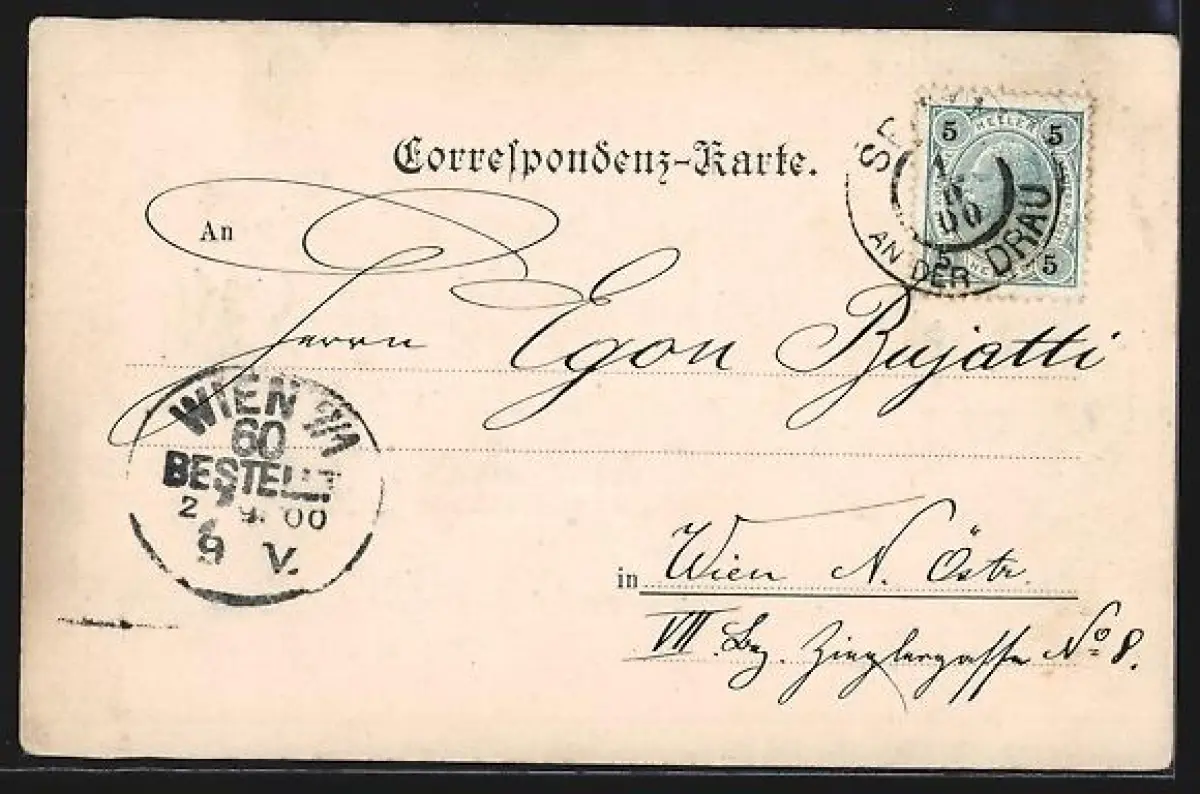 Correspondenz-Karte.
5 HELLER 5
5 HELLER 5
AN DER DRAU
00
An
Herrn Egon Bujatti
WIEN 7/1
60
BESTELLT
2. 9. 00
9 V.
in Wien N. Östr.
VII. Bez. Zieglergasse No 8.